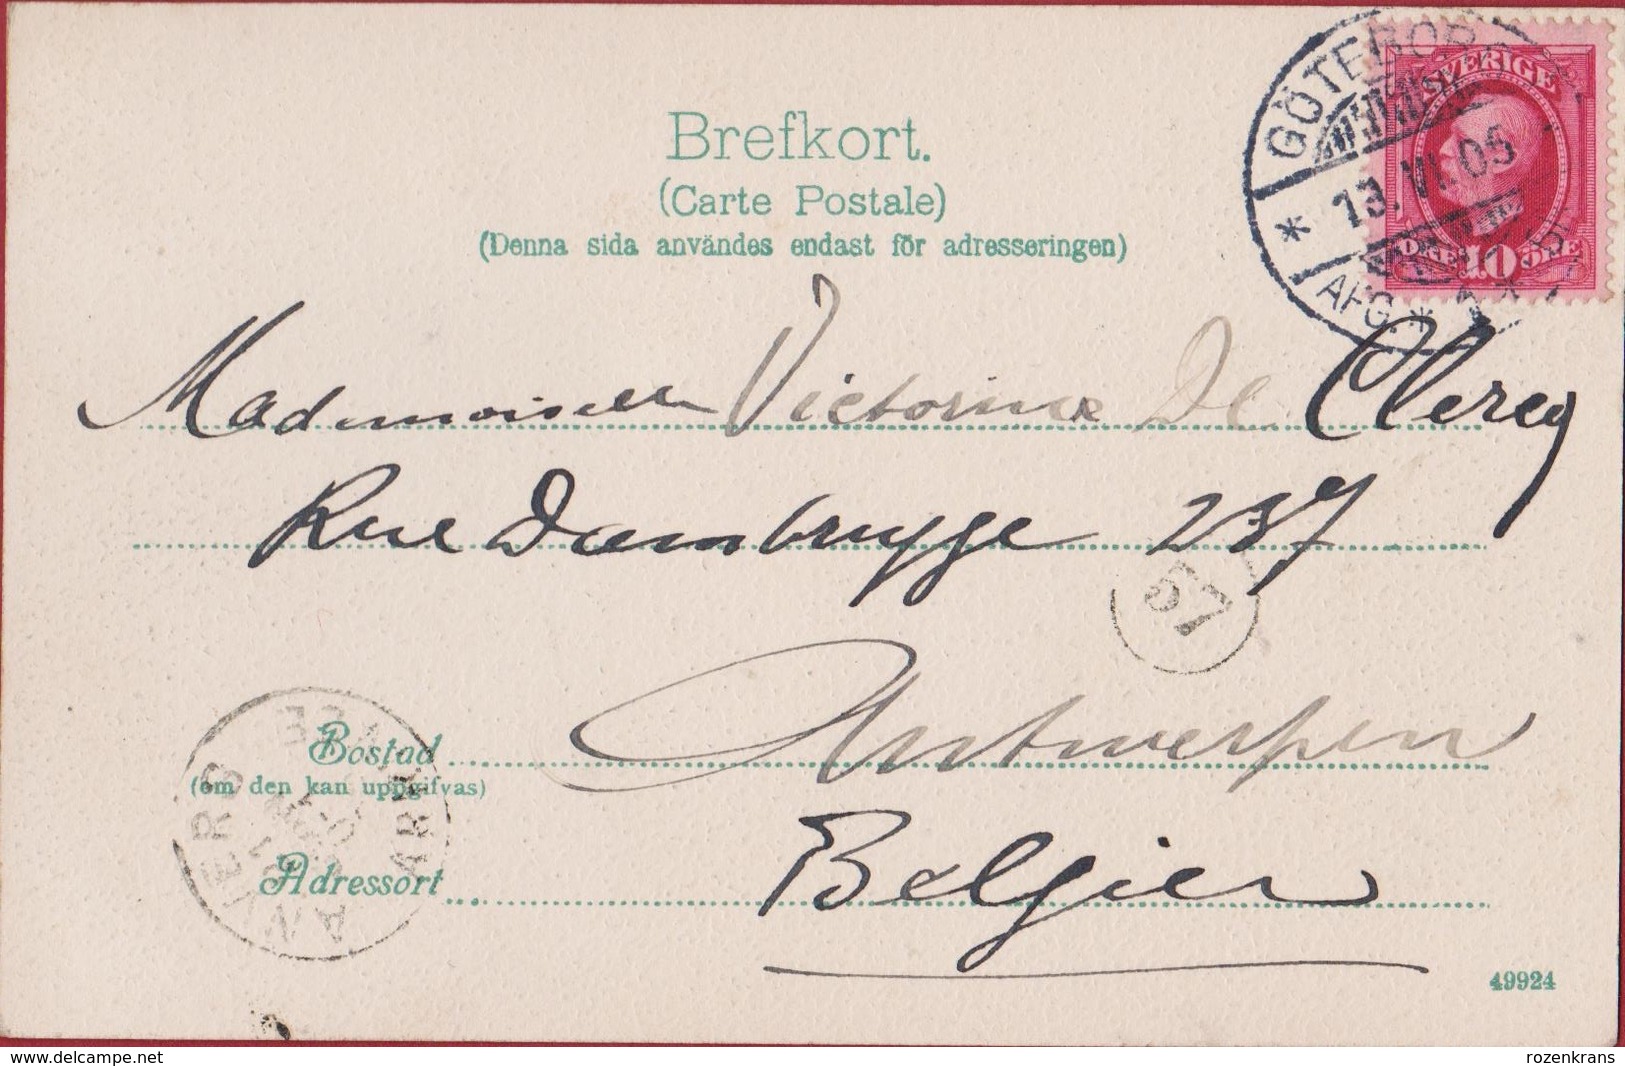 Brefkort.
(Carte Postale)
(Denna sida användes endast för adresseringen)
GÖTEBORG
* 13. VI. 05
AFG. * 1 *
SVERIGE
ÖRE 10 ÖRE
Mademoiselle Victorine De Clercq
Rue Dambrugge 237
57
Antwerpen
Bostad
(om den kan uppgifvas)
Belgien
Adressort
ANVERS
49924
www.delcampe.net
rozenkrans